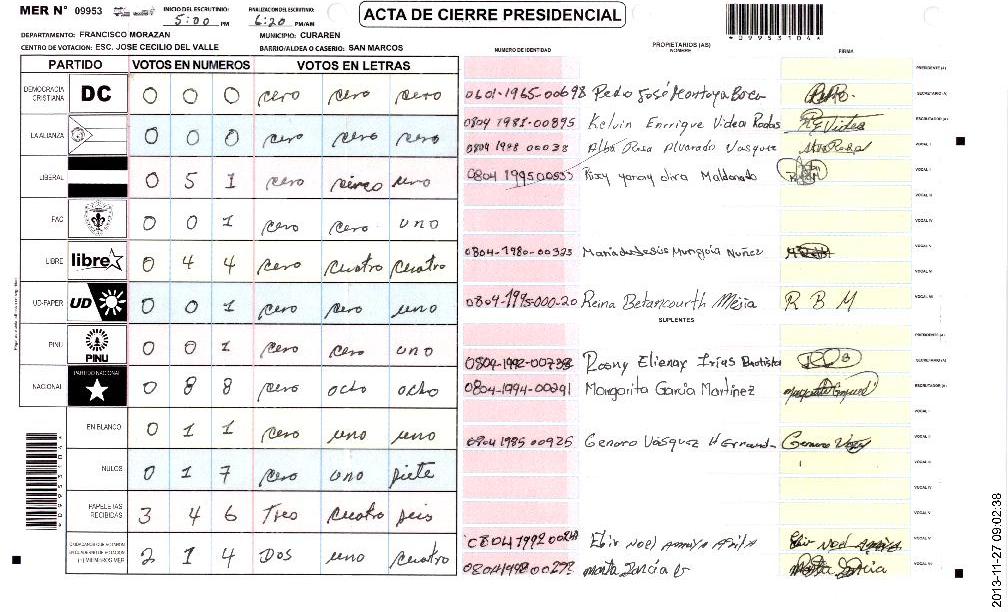 MER N° 09953 INICIO DEL ESCRUTINIO: 5:00 PM FINALIZACION DEL ESCRUTINIO: 6:20 PM/AM
ACTA DE CIERRE PRESIDENCIAL
*09953104*
DEPARTAMENTO: FRANCISCO MORAZAN MUNICIPIO: CURAREN
CENTRO DE VOTACION: ESC. JOSE CECILIO DEL VALLE BARRIO/ALDEA O CASERIO: SAN MARCOS
NUMERO DE IDENTIDAD PROPIETARIOS (AS) NOMBRE FIRMA
PARTIDO VOTOS EN NUMEROS VOTOS EN LETRAS
PRESIDENTE (A)
DEMOCRACIA CRISTIANA DC 0 0 0 cero cero cero
0601-1965-00698 Pedro José SECRETARIO (A)
LA ALIANZA 0 0 0 cero cero cero
0804 1981-00895 Kelvin Enrrique Videa Rodas ESCRUTADOR (A)
0804 1988 00038 Alba Rosa Alvarado Vasquez VOCAL I
LIBERAL 0 5 1 cero cinco uno
Maldonado VOCAL II
FAC 0 0 1 cero cero uno
VOCAL IV
LIBRE libre 0 4 4 cero cuatro cuatro
0804-1980-00325 Maria de Jesús Munguia Nuñez VOCAL V
VOCAL VI
UD-FAPER UD 0 0 1 cero cero uno
0804-1995-000-20 Reina Betancourth Mejia R B M VOCAL VII
SUPLENTES
PRESIDENTE (A)
PINU PINU 0 0 1 cero cero uno
0804-1992-00738 Rosny Elienay Irías Bautista SECRETARIO (A)
NACIONAL PARTIDO NACIONAL 0 8 8 cero ocho ocho
0804-1994-00291 Margarita Garcia Martinez ESCRUTADOR (A)
VOCAL I
EN BLANCO 0 1 1 cero uno uno
0804 1985 00925 Genaro Vásquez VOCAL II
NULOS 0 1 7 cero uno siete
VOCAL III
VOCAL IV
PAPELETAS RECIBIDAS 3 4 6 Tres cuatro seis
VOCAL V
Elir NOEL VOCAL VI
CIUDADANOS QUE VOTARON S/CUADERNO DE VOTACION (+) MIEMBROS MER 2 1 4 Dos uno cuatro
marta Garcia VOCAL VII
*09953104*
2013-11-27 09:02:38